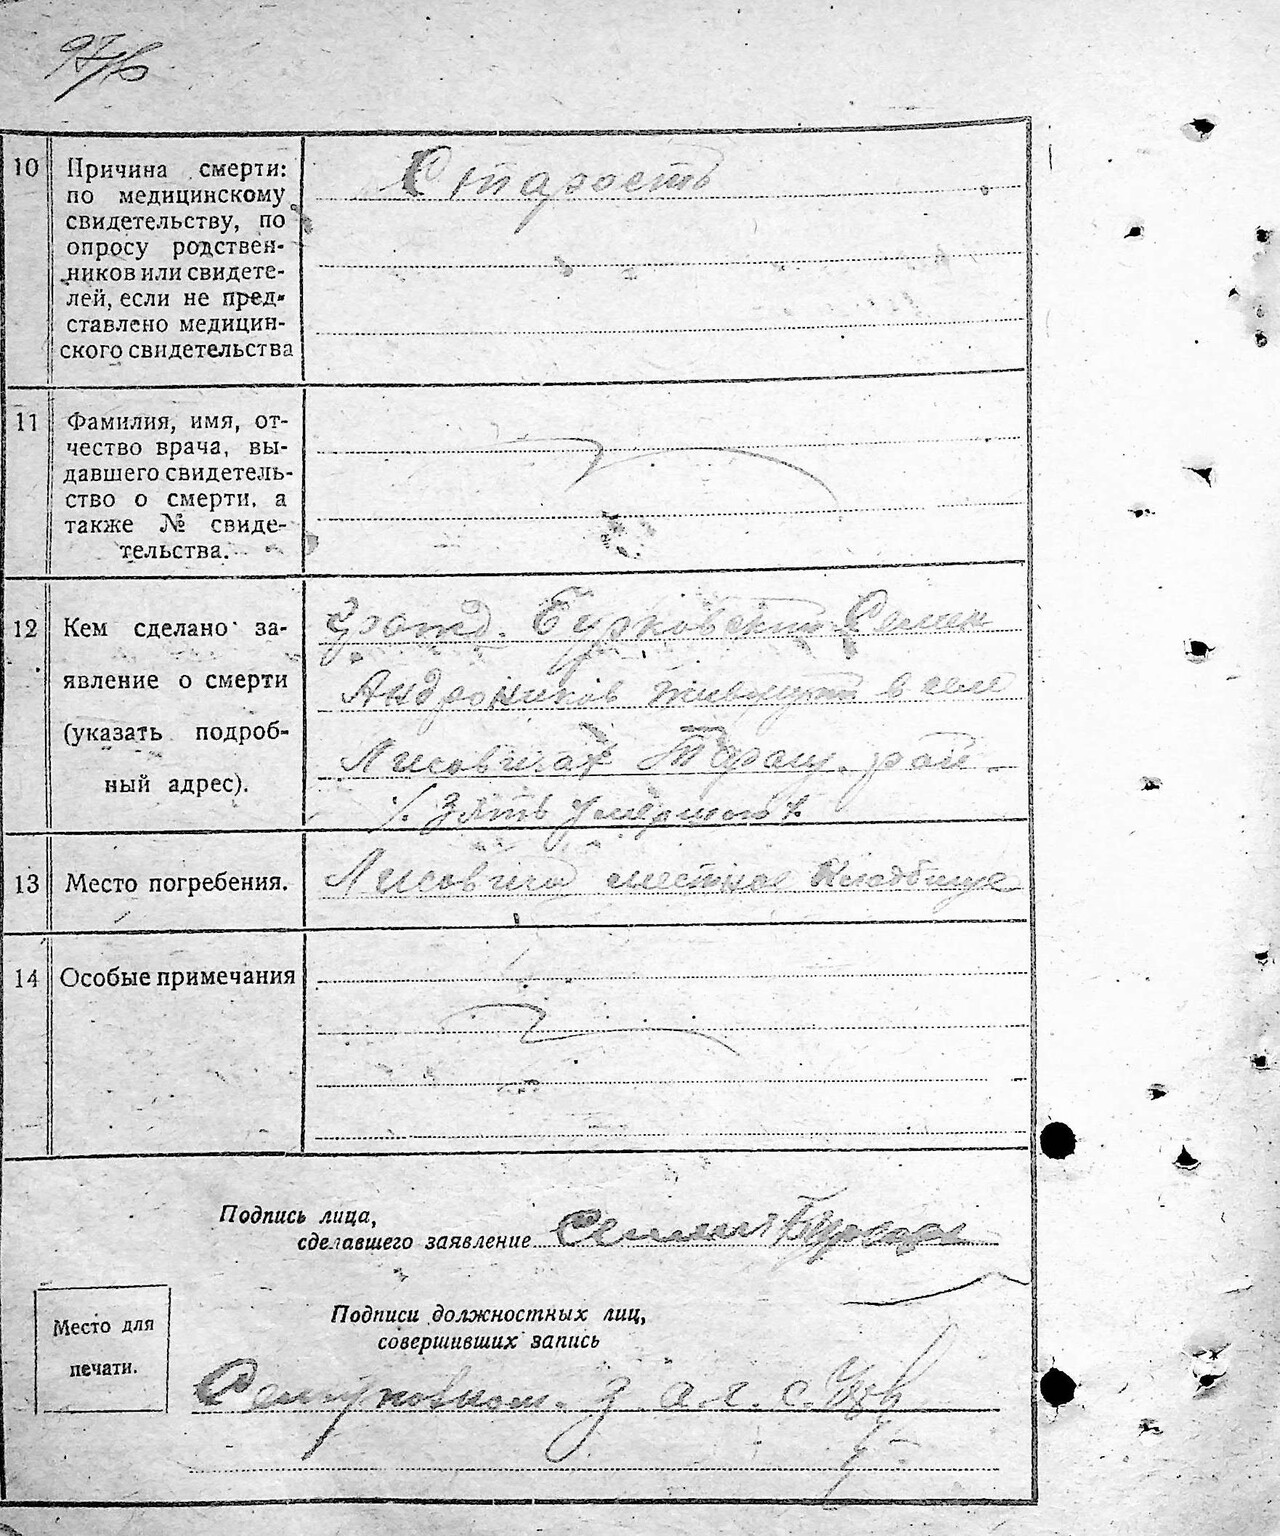 97/б
10
Причина смерти:
по медицинскому
свидетельству, по
опросу родствен-
ников или свидете-
лей, если не пред-
ставлено медицин-
ского свидетельства
Старость
11
Фамилия, имя, от-
чество врача, вы-
давшего свидетель-
ство о смерти, а
также № свиде-
тельства.
12
Кем сделано за-
явление о смерти
(указать подроб-
ный адрес).
Гражд. Бурковский Семен
Андроников живущий в селе
Лисовичах Таращ. рай-
/. Зять умершего /.
13
Место погребения.
Лисовичи местное кладбище
14
Особые примечания
Подпись лица,
сделавшего заявление
Семен
Место для
печати.
Подписи должностных лиц,
совершивших запись